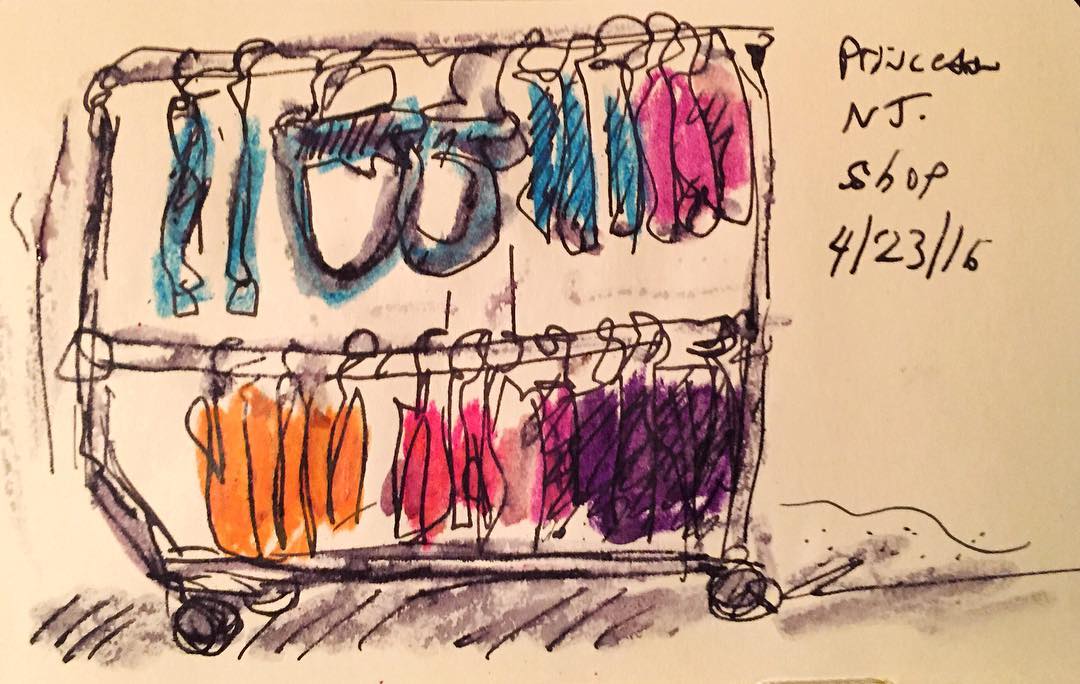 Princeton
NJ.
Shop
4/23/16